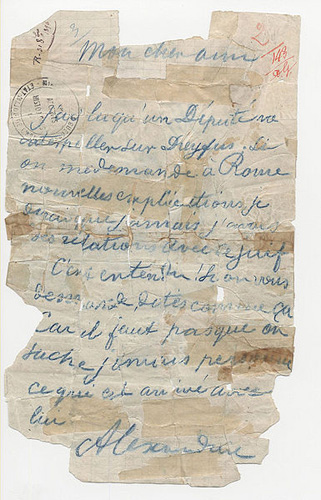 Mon cher ami
J'ai lu qu'un Député va
interpeller sur Dreyfus. Si
on me demande à Rome
nouvelles explications, je
dirai que jamais j'avais
des relations avec ce juif
C'est entendu. Si on vous
demande, dites comme ça
Car il faut pas que on
sache jamais personne
ce qui est arrivé avec
lui
Alexandrine